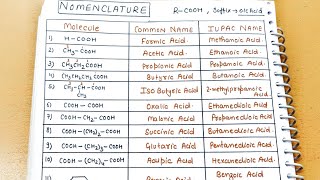 NOMENCLATURE R-COOH, Suffix → oic Acid
Molecule COMMON NAME IUPAC NAME
1) H-COOH Formic Acid. Methanoic Acid.
2) CH3-COOH Acetic Acid Ethanoic Acid.
3) CH3CH2COOH Propionic Acid Propanoic Acid.
4) CH3CH2CH2COOH Butyric Acid Butanoic Acid.
5) CH3-CH-COOH Iso Butyric Acid 2-methylpropanoic Acid.
CH3
6) COOH-COOH Oxalic Acid Ethanedioic Acid
7) COOH-CH2-COOH Malonic Acid Propanedioic Acid
8) COOH-(CH2)2-COOH Succinic Acid Butanedioic Acid
9) COOH-(CH2)3-COOH Glutaric Acid Pentanedioic Acid
10) COOH-(CH2)4-COOH Adipic Acid Hexanedioic Acid
Benzoic Acid